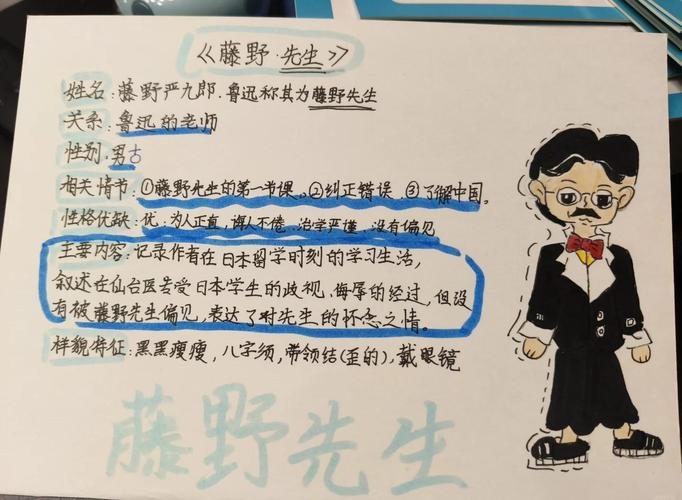 《藤野·先生》
姓名:藤野严九郎.鲁迅称其为藤野先生
关系:鲁迅的老师
性别:男
相关情节:①藤野先生的第一节课、②纠正错误 ③了解中国。
性格优缺:优:为人正直,诲人不倦、治学严谨、没有偏见
主要内容:记录作者在日本留学时刻的学习生活,
叙述在仙台医专受日本学生的歧视、侮辱的经过,但没
有被藤野先生偏见,表达了对先生的怀念之情。
样貌特征:黑黑瘦瘦,八字须,带领结(歪的),戴眼镜
藤野先生